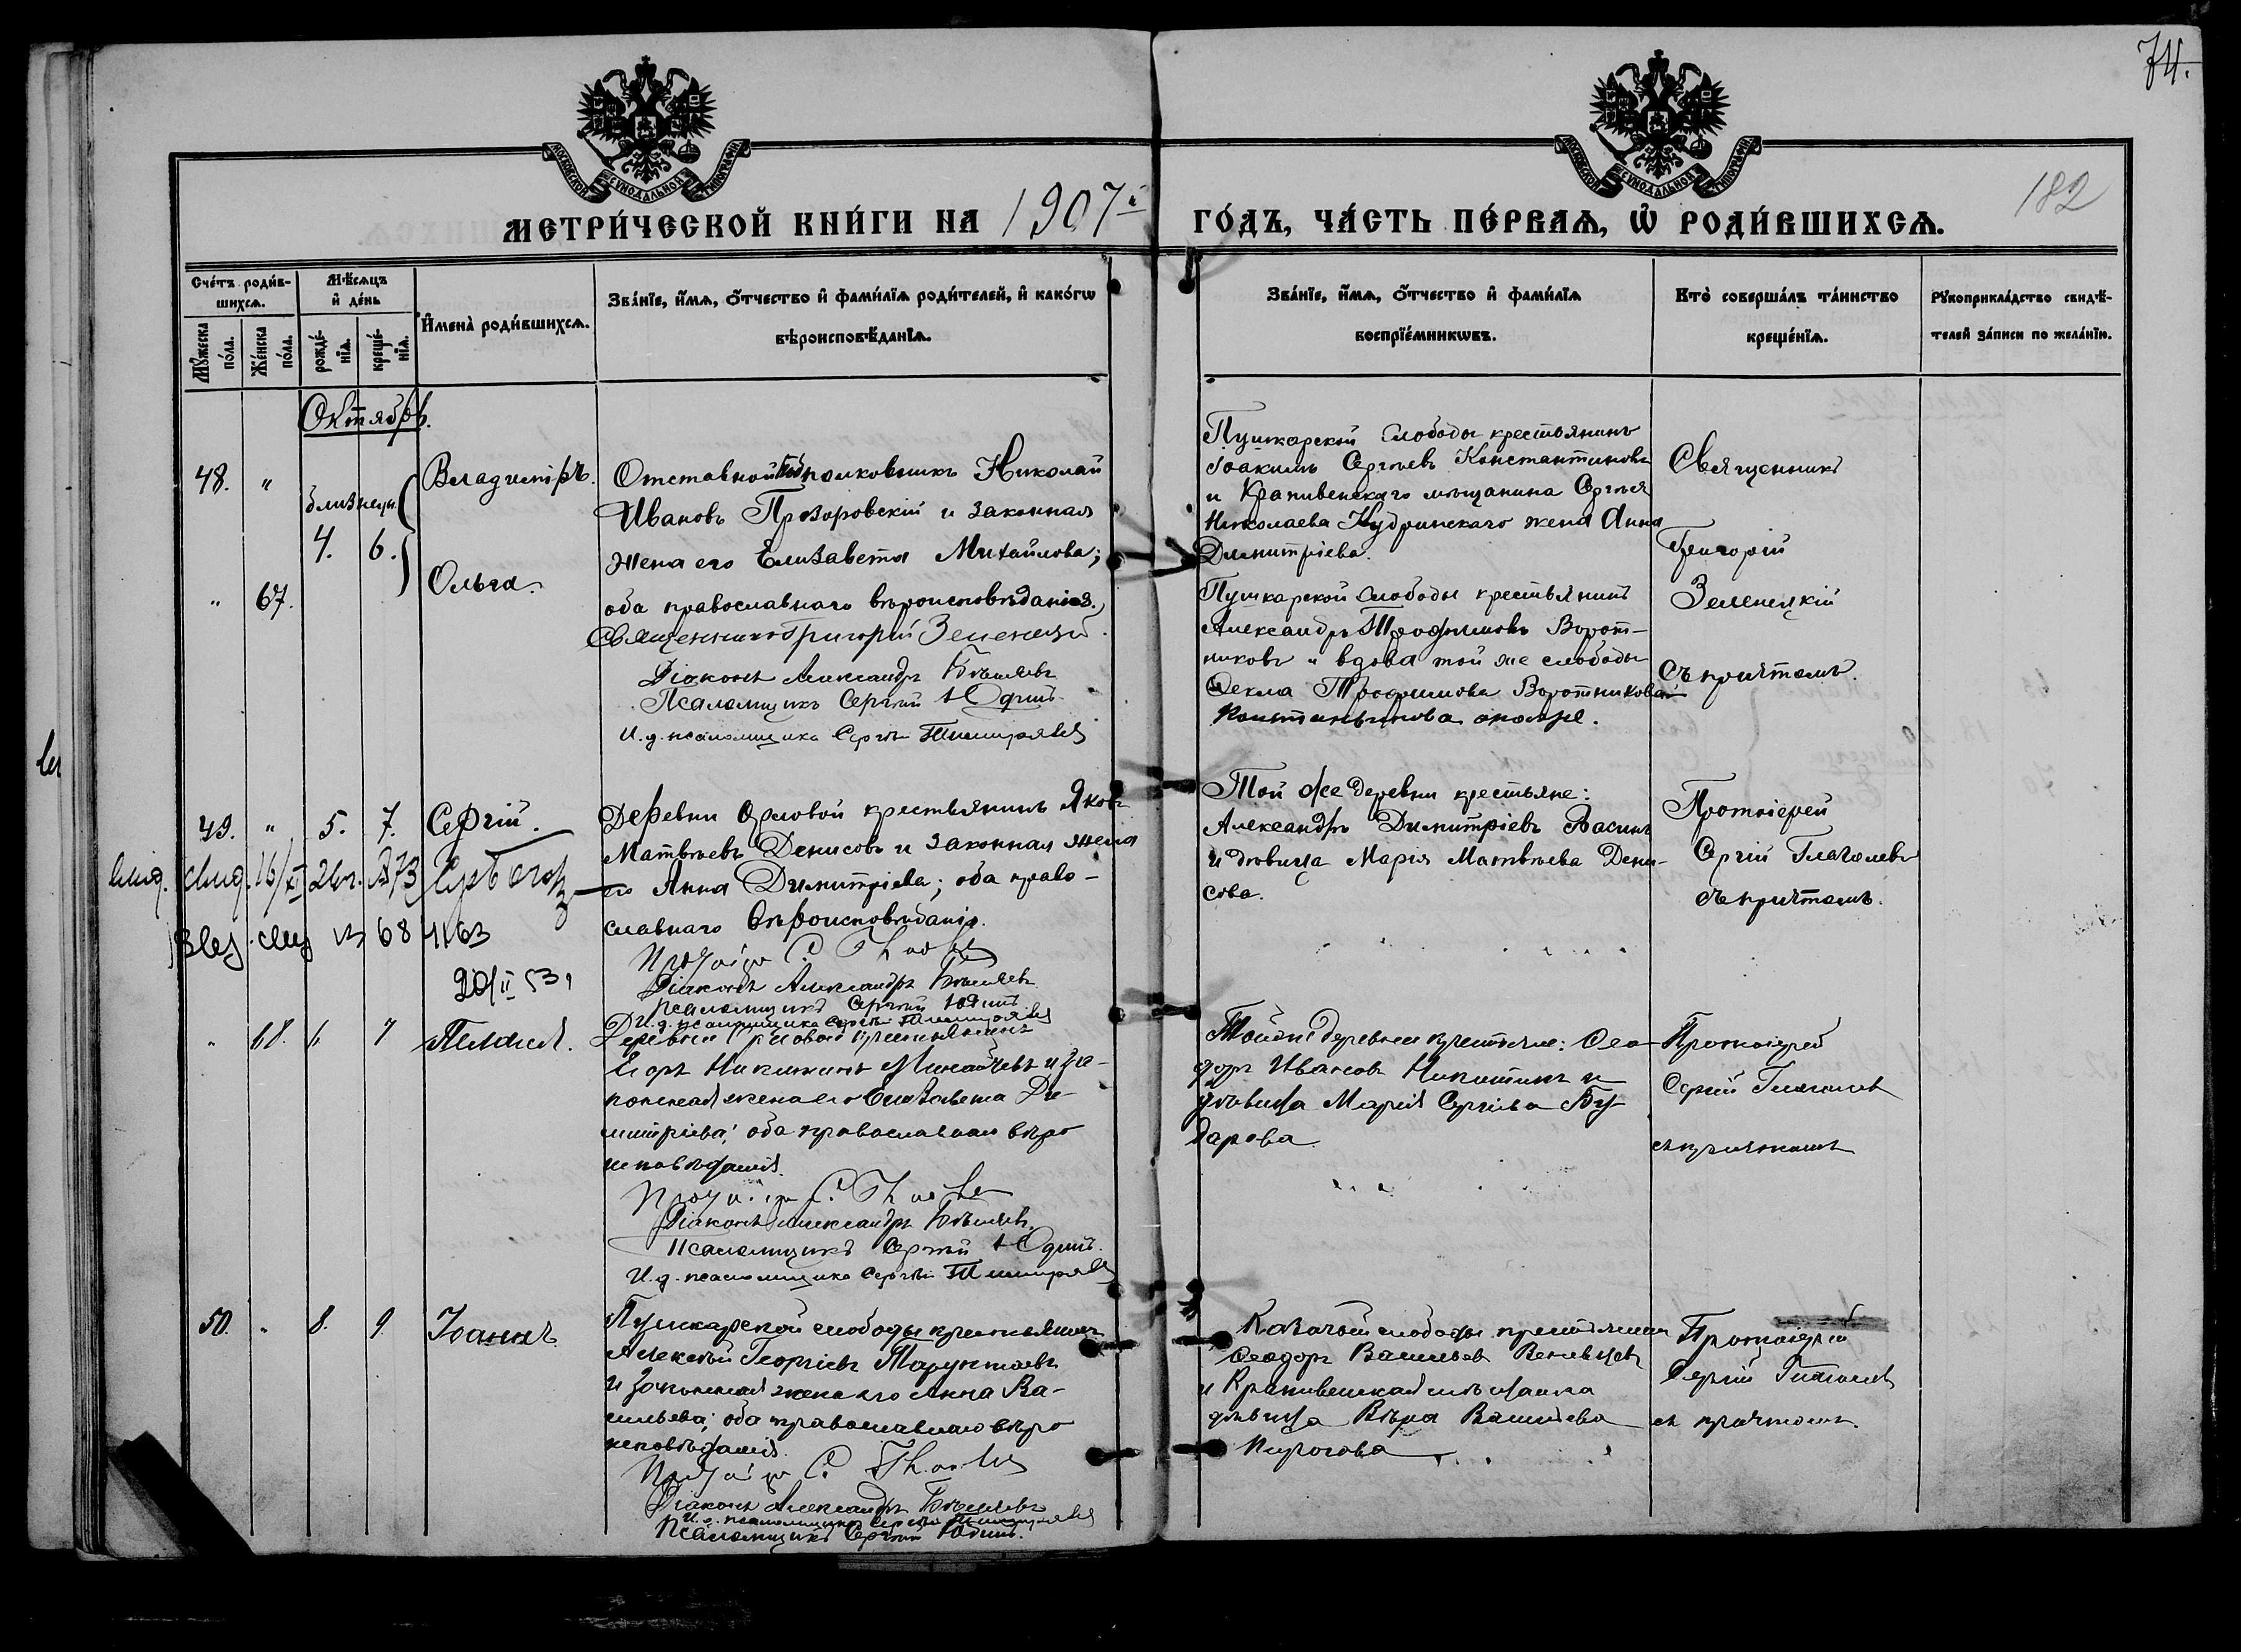 74.
182
МОСКОВСКОЙ СѴНОДАЛЬНОЙ ТИПОГРАФІИ
МОСКОВСКОЙ СѴНОДАЛЬНОЙ ТИПОГРАФІИ
МЕТРИ́ЧЕСКОЙ КНИ́ГИ НА 1907й ГО́ДЪ, ЧА́СТЬ ПЕ́РВАѦ, Ѡ҆ РОДИ́ВШИХСѦ.
Сче́тъ роди́в-
шихсѧ.
Мꙋ́жеска по́ла.
Же́нска по́ла.
Мѣ́сѧцъ и҆ де́нь
рожде́-нїѧ.
креще́-нїѧ.
И҆мена̀ роди́вшихсѧ.
Зва́нїе, и҆́мѧ, ѻ҆́тчество и҆ фами́лїѧ роди́телей, и҆ како́гѡ
вѣроисповѣ́данїѧ.
Зва́нїе, и҆́мѧ, ѻ҆́тчество и҆ фами́лїѧ
воспрїе́мникѡвъ.
Кто̀ соверша́лъ та́инство
креще́нїѧ.
Рꙋкоприкла́дство свидѣ́-
телей за́писи по жела́нїю.
Октябрь.
48. " близнецы 4. 6. Владиміръ.
" 67. Ольга.
Отставной Подполковникъ Николай
Ивановъ Прозоровскій и законная
жена его Елизавета Михайлова;
оба православнаго вѣроисповѣданія.
Священникъ Григорій Зеленецкій.
Діаконъ Александръ Бѣляевъ
Псаломщикъ Сергій Юдинъ.
И. д. псаломщика Сергѣй Тимирязевъ
Пушкарской слободы крестьянинъ
Іоакимъ Сергѣевъ Константиновъ
и Крапивенскаго мѣщанина Сергѣя
Николаева Кудринскаго жена Анна
Димитріева.
Пушкарской слободы крестьянинъ
Александръ Трофимовъ Ворот-
никовъ и вдова той же слободы
Ѳекла Трофимова Воротникова
Константинова
Священникъ
Григорій
Зеленецкій
съ причтомъ.
49. " 5. 7. Сергій.
Деревни Орловой крестьянинъ Яковъ
Матвѣевъ Денисовъ и законная жена
его Анна Димитріева; оба право-
славнаго вѣроисповѣданія.
Діаконъ Александръ Бѣляевъ
Псаломщикъ Сергій Юдинъ
И. д. псаломщика Сергѣй Тимирязевъ
Той же деревни крестьяне:
Александръ Димитріевъ Васинъ
и дѣвица Марія Матвѣева Дени-
сова.
Протоіерей
Сергій Глаголевъ
съ причтомъ.
16/XI 73
68 4163
20/II 53
" 68. 6 7 Пелагія.
Деревни Орловой крестьянинъ
Егоръ Никитинъ и за-
конная жена его Елизавета Ди-
митріева; оба православнаго вѣро
исповѣданія.
Діаконъ Александръ Бѣляевъ.
Псаломщикъ Сергій Юдинъ.
И. д. псаломщика Сергѣй Тимирязевъ
Той же деревни крестьяне: Ѳео-
доръ Ивановъ Никитинъ и
дѣвица Марія Сергѣева Бу-
дарова.
Протоіерей
Сергій Глаголевъ
съ причтомъ
50. " 8. 9. Іоаннъ.
Пушкарской слободы крестьянинъ
Алексѣй Георгіевъ
и законная жена его Анна Ва-
сильева; оба православнаго вѣро
исповѣданія.
Діаконъ Александръ Бѣляевъ
И. д. псаломщика Сергѣй Тимирязевъ
Псаломщикъ Сергій Юдинъ.
Казачьей слободы крестьянинъ
Ѳеодоръ Васильевъ Веневцевъ
и Крапивенская мѣщанка
дѣвица Вѣра Васильева
Пирогова
Протоіерей
Сергій Глаголевъ
съ причтомъ.